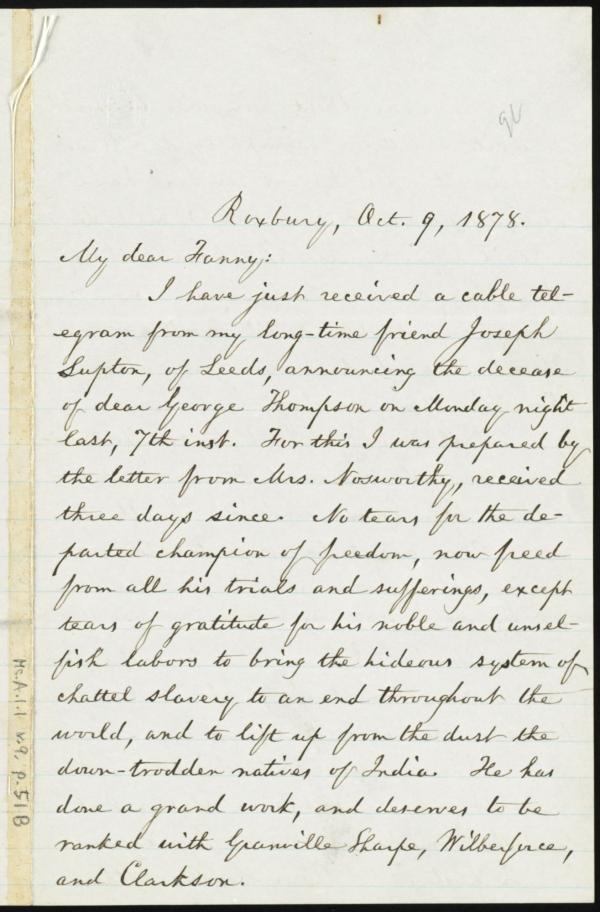 Roxbury, Oct. 9, 1878.
My dear Fanny:
I have just received a cable tel-
egram from my long-time friend Joseph
Lupton, of Leeds, announcing the decease
of dear George Thompson on Monday night
last, 7th inst. For this I was prepared by
the letter from Mrs. Nosworthy, received
three days since. No tears for the de-
parted champion of freedom, now freed
from all his trials and sufferings, except
tears of gratitude for his noble and unsel-
fish labors to bring the hideous system of
chattel slavery to an end throughout the
world, and to lift up from the dust the
down-trodden natives of India. He has
done a grand work, and deserves to be
ranked with Granville Sharpe, Wilberforce,
and Clarkson.
Ms.A.1.1 v.9, p.51B